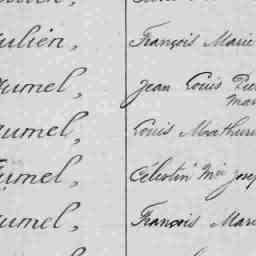 ulien, François Marie
umel, Jean Louis
umel, Louis Mathuri
umel, Célestin Mie Josep
umel, François Mari